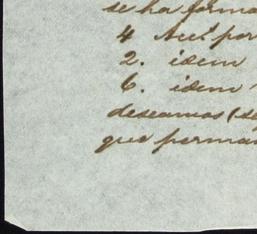 se ha forma
4 Accs por
2. idem
6. idem
deseamos (se
que perman